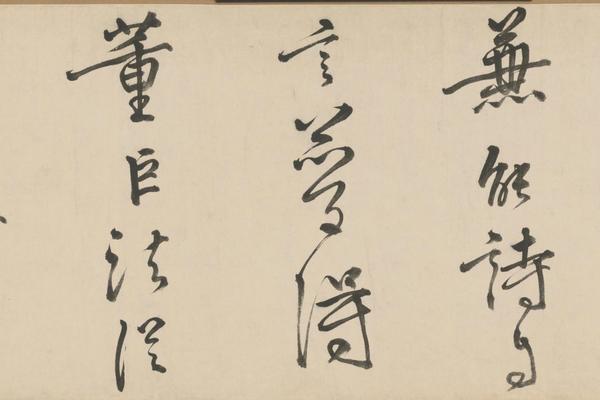 兼能詩自
言得
董巨法從